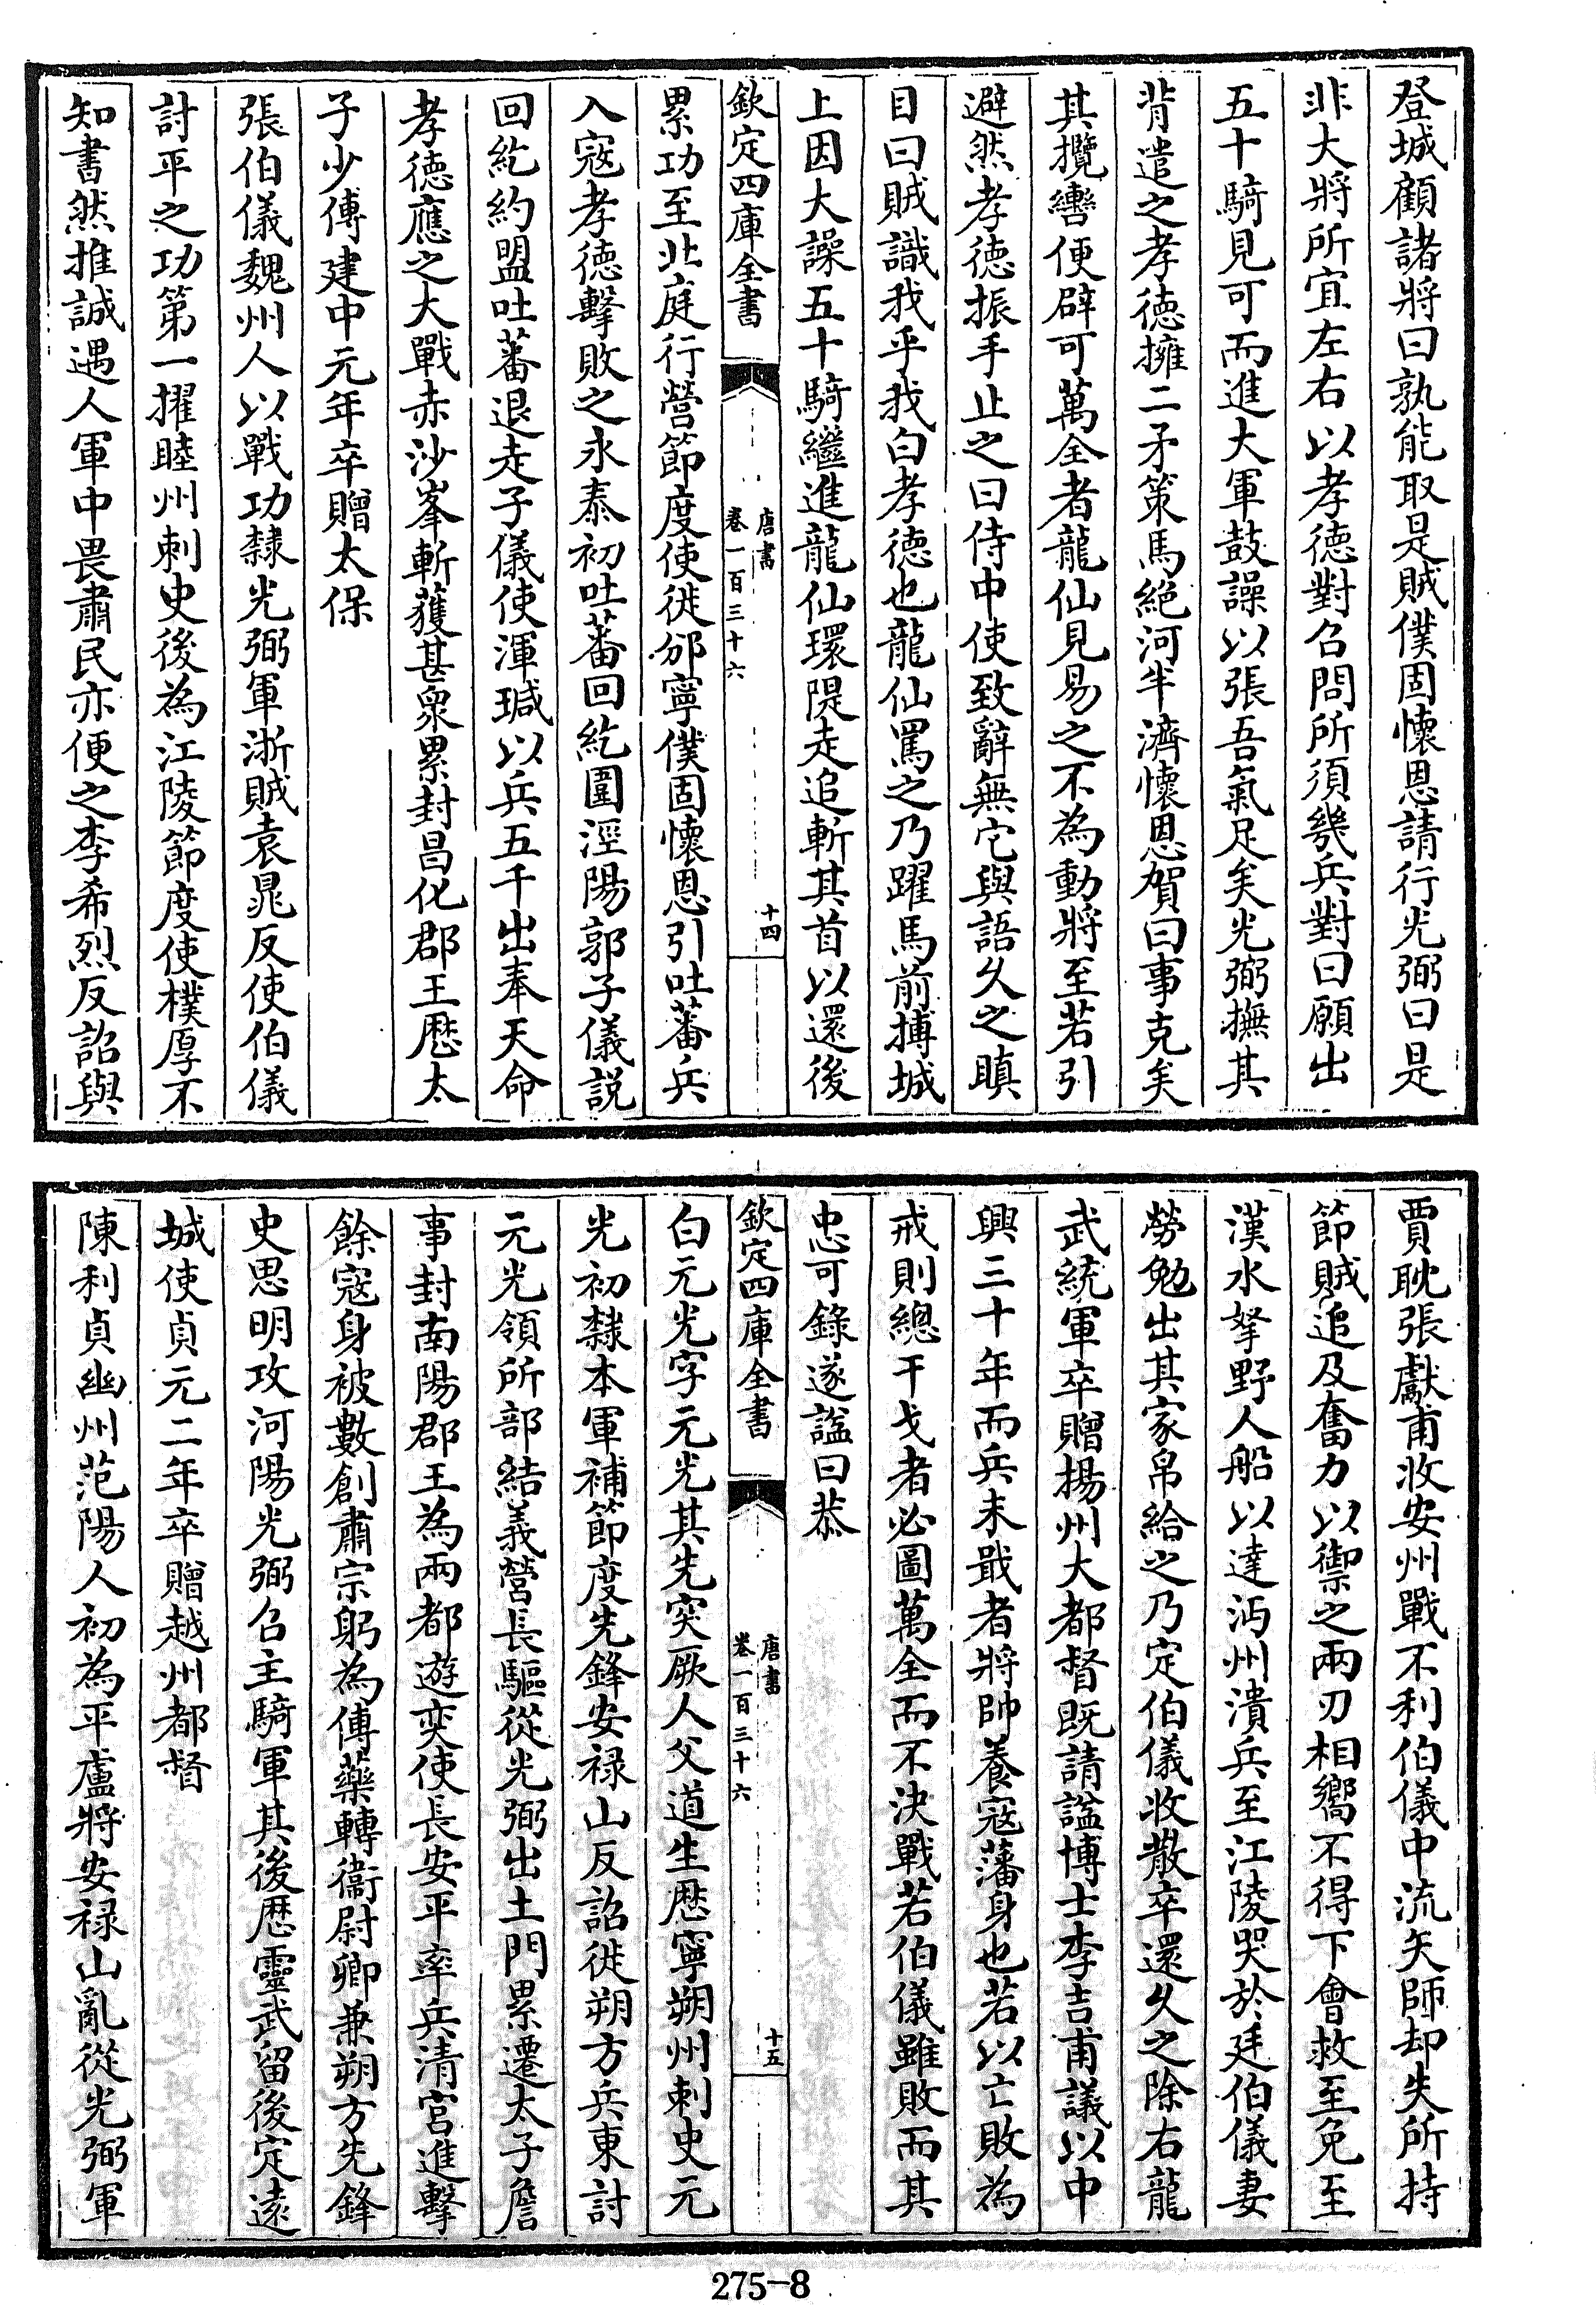 登城顧諸將曰孰能取是賊僕固懷恩請行光弼曰是
非大將所宜左右以孝德對召問所須幾兵對曰願出
五十騎見可而進大軍鼓譟以張吾氣足矣光弼撫其
背遣之孝德擁二矛策馬絕河半濟懷恩賀曰事克矣
其攬轡便辟可萬全者龍仙見易之不為動將至若引
避然孝德振手止之曰侍中使致辭無它與語久之瞋
目曰賊識我乎我白孝德也龍仙罵之乃躍馬前搏城
上因大譟五十騎繼進龍仙環隄走追斬其首以還後
欽定四庫全書
唐書
卷一百三十六
十四
累功至北庭行營節度使徙邠寧僕固懷恩引吐蕃兵
入寇孝德擊敗之永泰初吐蕃回紇圍涇陽郭子儀說
回紇約盟吐蕃退走子儀使渾瑊以兵五千出奉天命
孝德應之大戰赤沙峯斬獲甚衆累封昌化郡王歷太
子少傅建中元年卒贈太保
張伯儀魏州人以戰功隸光弼軍浙賊袁晁反使伯儀
討平之功第一擢睦州刺史後為江陵節度使樸厚不
知書然推誠遇人軍中畏肅民亦便之李希烈反詔與
賈耽張獻甫收安州戰不利伯儀中流矢師却失所持
節賊追及奮力以禦之兩刃相嚮不得下會救至免至
漢水拏野人船以達沔州潰兵至江陵哭於廷伯儀妻
勞勉出其家帛給之乃定伯儀收散卒還久之除右龍
武統軍卒贈揚州大都督既請諡博士李吉甫議以中
興三十年而兵未戢者將帥養寇藩身也若以亡敗為
戒則總干戈者必圖萬全而不決戰若伯儀雖敗而其
忠可錄遂諡曰恭
欽定四庫全書
唐書
卷一百三十六
十五
白元光字元光其先突厥人父道生歷寧朔州刺史元
光初隸本軍補節度先鋒安禄山反詔徙朔方兵東討
元光領所部結義營長驅從光弼出土門累遷太子詹
事封南陽郡王為兩都遊奕使長安平率兵清宮進擊
餘寇身被數創肅宗躬為傅藥轉衞尉卿兼朔方先鋒
史思明攻河陽光弼召主騎軍其後歷靈武留後定遠
城使貞元二年卒贈越州都督
陳利貞幽州范陽人初為平盧將安禄山亂從光弼軍
275-8